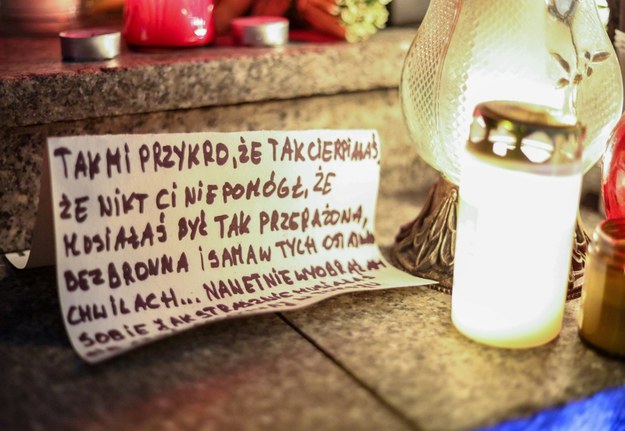 TAK MI PRZYKRO, ŻE TAK CIERPIAŁAŚ
ŻE NIKT CI NIE POMÓGŁ, ŻE
MUSIAŁAŚ BYĆ TAK PRZERAŻONA,
BEZBRONNA I SAMA W TYCH
CHWILACH... NAWET NIE WYOBRAŻAM
SOBIE JAK STRASZNIE